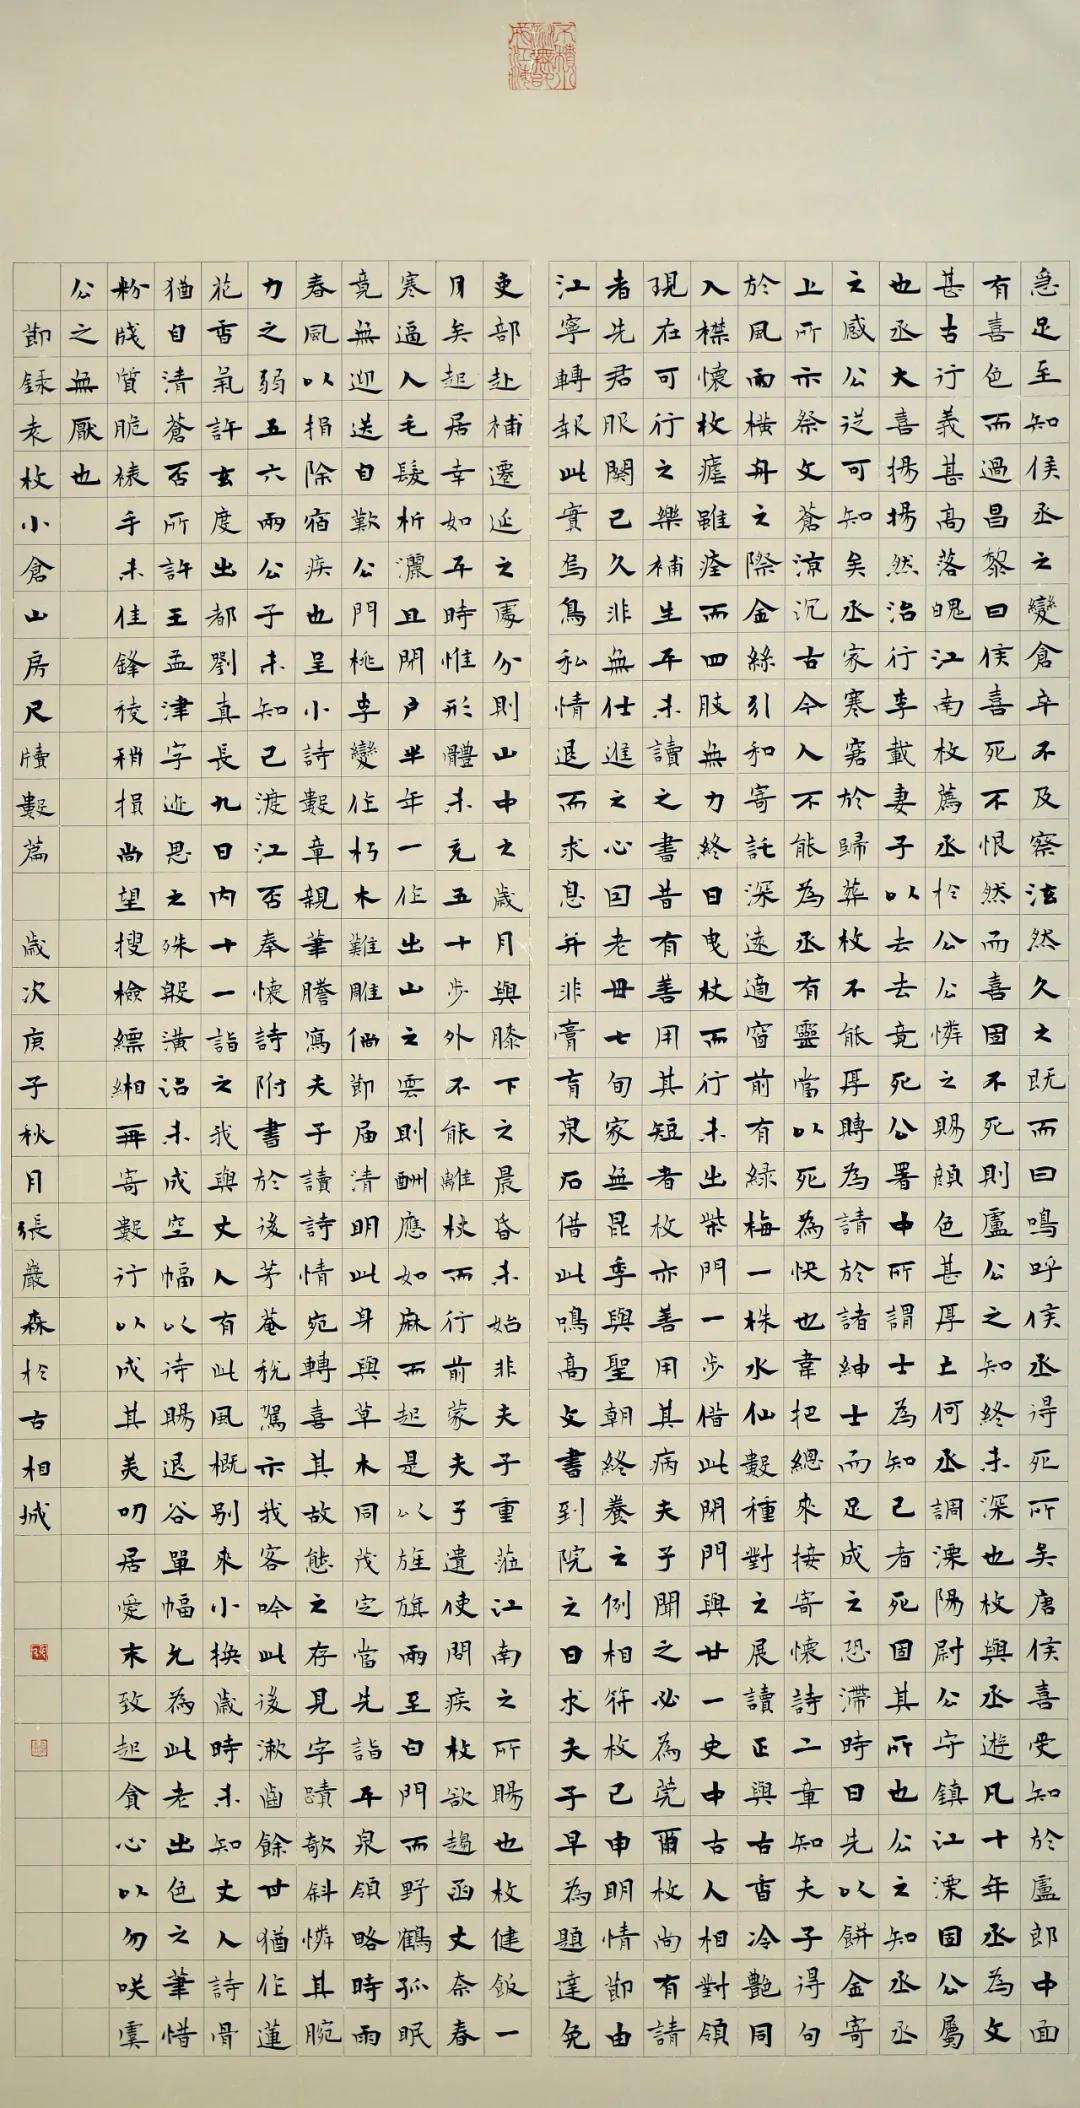 急足至知侯丞之變倉卒不及察泫然久之既而曰鳴呼侯丞得死所矣唐侯喜受知於盧郎中面
有喜色而過昌黎曰侯喜死不恨然而喜固不死則盧公之知終未深也枚與丞遊凡十年丞為文
甚古行義甚高落魄江南枚薦丞於公公憐之賜顏色甚厚上何丞調溧陽尉公守鎮江溧固公屬
也丞大喜揚揚然治行李載妻子以去去竟死公署中所謂士為知己者死固其所也公之知丞丞
之感公從可知矣丞家寒窘於歸葬枚不能厚賻為請於諸紳士而足成之恐滯時日先以餅金寄
上所示祭文蒼涼沉古令人不能為丞有靈當以死為快也韋把總來接寄懷詩二章知夫子得句
於風雨橫舟之際金絲引和寄託深遠適窗前有綠梅一株水仙數種對之展讀正與古香冷艷同
入襟懷枚瘧雖痊而四肢無力終日曳杖而行未出柴門一步借此閉門與廿一史中古人相對領
現在可行之樂補生平未讀之書昔有善用其短者枚亦善用其病夫子聞之必為莞爾枚尚有請
者先君服闋已久非無仕進之心因老母七旬家無昆季與聖朝終養之例相符枚已申明情節由
江寧轉報此實烏鳥私情退而求息并非膏肓泉石借此鳴高文書到院之日求夫子早為題達免
吏部赴補遷延之處分則山中之歲月與膝下之晨昏未始非夫子重蒞江南之所賜也枚健飯一
月矣起居幸如平時惟形體未充五十步外不能離杖而行前蒙夫子遺使問疾枚欲趨函丈奈春
寒逼人毛髮析灑且閉戶半年一作出山之雲則酬應如麻而起是以旌旗雨至白門而野鶴孤眠
竟無迎送自歎公門桃李變作朽木難雕倘節屆清明此身與草木同茂定當先詣平泉領略時雨
春風以捐除宿疾也呈小詩數章親筆謄寫夫子讀詩情宛轉喜其故態之存見字蹟欹斜憐其腕
力之弱五六兩公子未知已渡江否奉懷詩附書於後芳菴稅駕亦我客吟此後漱齒餘甘猶作蓮
花香氣許玄度出都劉真長九日內十一詣之我與丈人有此風概別來小換歲時未知丈人詩骨
猶自清蒼否所許王孟津字迹思之殊殷潢治未成空幅以待賜退谷單幅尤為此老出色之筆惜
粉牋質脆裱手未佳鋒稜稍損尚望搜檢縹緗再寄數行以成其美叨居愛末致起貪心以勿咲虞
公之無厭也
節錄袁枚小倉山房尺牘數篇 歲次庚子秋月張嚴森於古相城